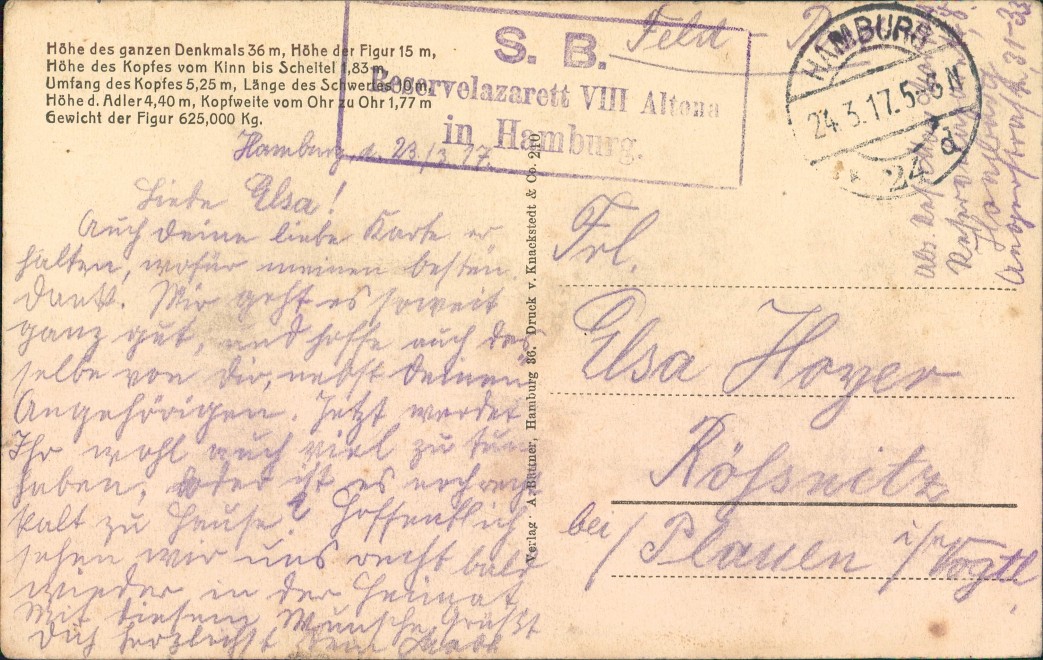 Höhe des ganzen Denkmals 36 m, Höhe der Figur 15 m,
Höhe des Kopfes vom Kinn bis Scheitel 1,83 m,
Umfang des Kopfes 5,25 m, Länge des Schwertes 10 m,
Höhe d. Adler 4,40 m, Kopfweite vom Ohr zu Ohr 1,77 m
Gewicht der Figur 625,000 Kg.
S. B.
Reservelazarett VIII Altona
in Hamburg.
Feld -
HAMBURG
24.3.17.5-6N
* 24 d
Hamburg, d. 23/3.17.
Liebe Elsa!
Auch deine liebe Karte er
halten, wofür meinen besten
Dank. Mir geht es soweit
ganz gut, und hoffe auch das
selbe von Dir, nebst deinen
Angehörigen. Jetzt werdet
Ihr wohl auch viel zu tun
haben, oder ist es noch recht
kalt zu Hause? Hoffentlich
sehen wir uns recht bald
wieder in der Heimat
Mit diesem Wunsche Grüßt
Dich herzlichst Dein
Verlag · A. Büttner, Hamburg 36. Druck v. Knackstedt & Co. 210
Frl.
Elsa Hoyer
Rößnitz
bei / Plauen i/ Vogtl.
Abs.
Hamburg
31-33